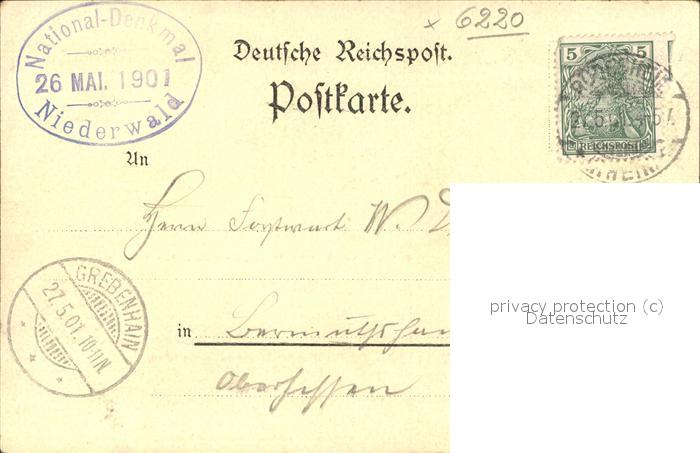 National-Denkmal
26 MAI. 1901
Niederwald
× 6220
Deutsche Reichspost.
Postkarte.
5 5
REICHSPOST
An
Herrn Forstwart W.
GREBENHAIN
27.5.01.10-11N.
in Bermuthshain
Oberhessen
privacy protection (c)
Datenschutz